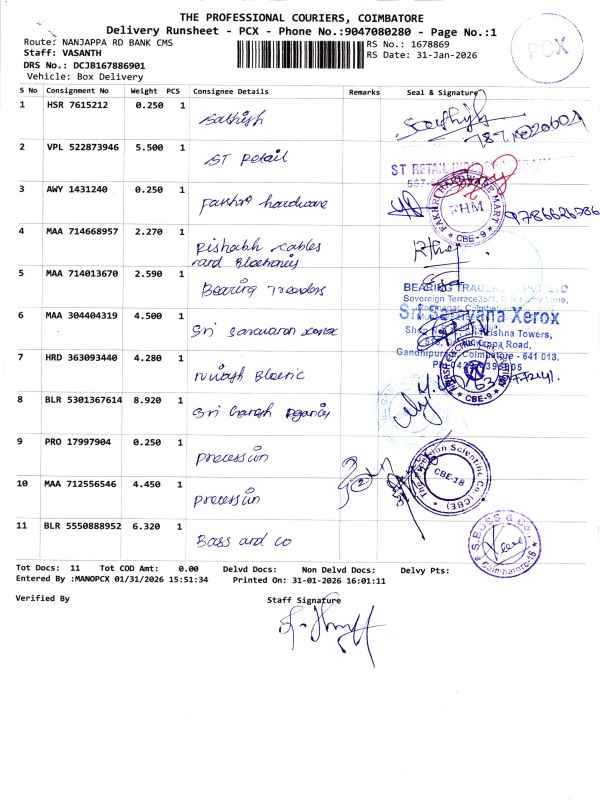 THE PROFESSIONAL COURIERS, COIMBATORE
Delivery Runsheet - PCX - Phone No.:9047080280 - Page No.:1
Route: NANJAPPA RD BANK CMS
RS No.: 1678869
Staff: VASANTH
RS Date: 31-Jan-2026
DRS No.: DCJB167886901
Vehicle: Box Delivery
PCX
S No Consignment No Weight PCS Consignee Details Remarks Seal & Signature
1 HSR 7615212 0.250 1 Sathish
2 VPL 522873946 5.500 1 ST Retail
ST RETAIL
3 AWY 1431240 0.250 1 Fakhri hardware
FAKHRI HARDWARE MART
FHM
CBE-9
9786626786
4 MAA 714668957 2.270 1 Rishabh cables
and Electronics
5 MAA 714013670 2.590 1 Bearing Traders
BEARING TRADERS LTD
Sovereign Terrace
6 MAA 304404319 4.500 1 Sri Saravana xerox
Sri Saravana Xerox
Krishna Towers,
Road,
Gandhipuram, Coimbatore - 641 018.
7 HRD 363093440 4.280 1
CBE-9
8 BLR 5301367614 8.920 1 Sri Ganesh Agencies
9 PRO 17997904 0.250 1 precession
The Precision Scientific Co. (CBE)
CBE-18
10 MAA 712556546 4.450 1 precession
11 BLR 5550888952 6.320 1 Boss and co
S. BOSS & Co.,
Coimbatore-18
Tot Docs: 11 Tot COD Amt: 0.00 Delvd Docs: Non Delvd Docs: Delvy Pts:
Entered By :MANOPCX 01/31/2026 15:51:34 Printed On: 31-01-2026 16:01:11
Verified By Staff Signature